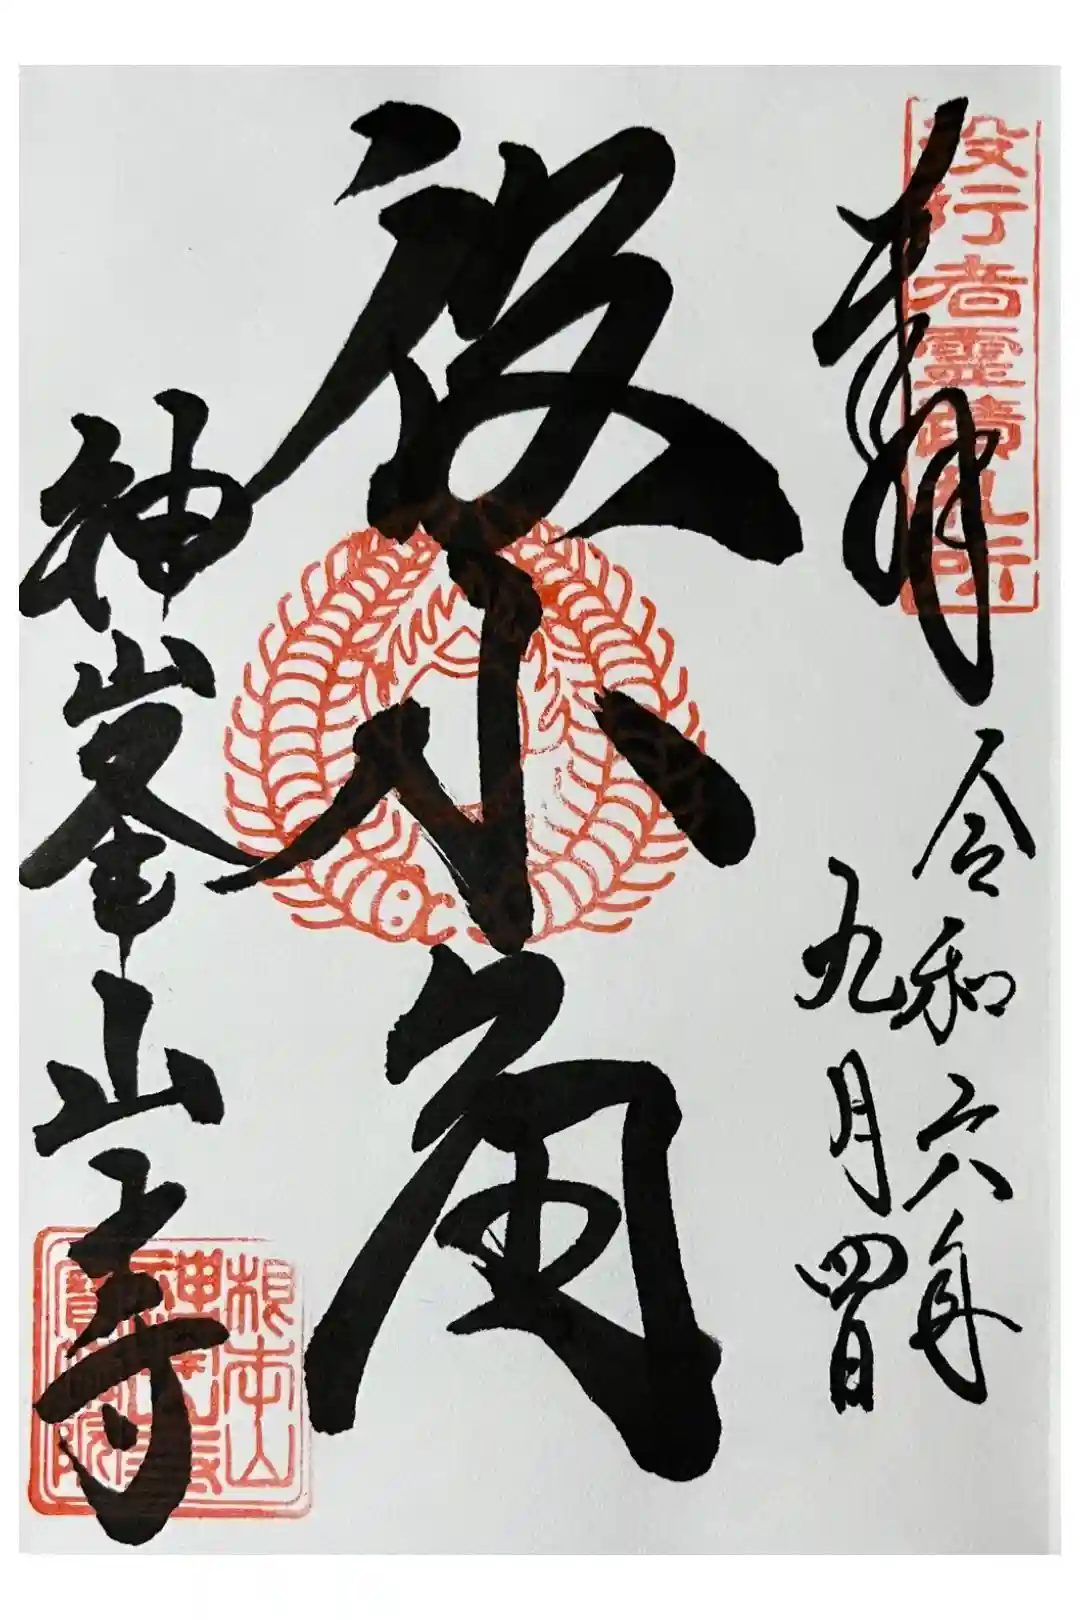 役行者霊蹟札所
奉拝
令和六年
九月四日
役小角
神峯山寺
根本山